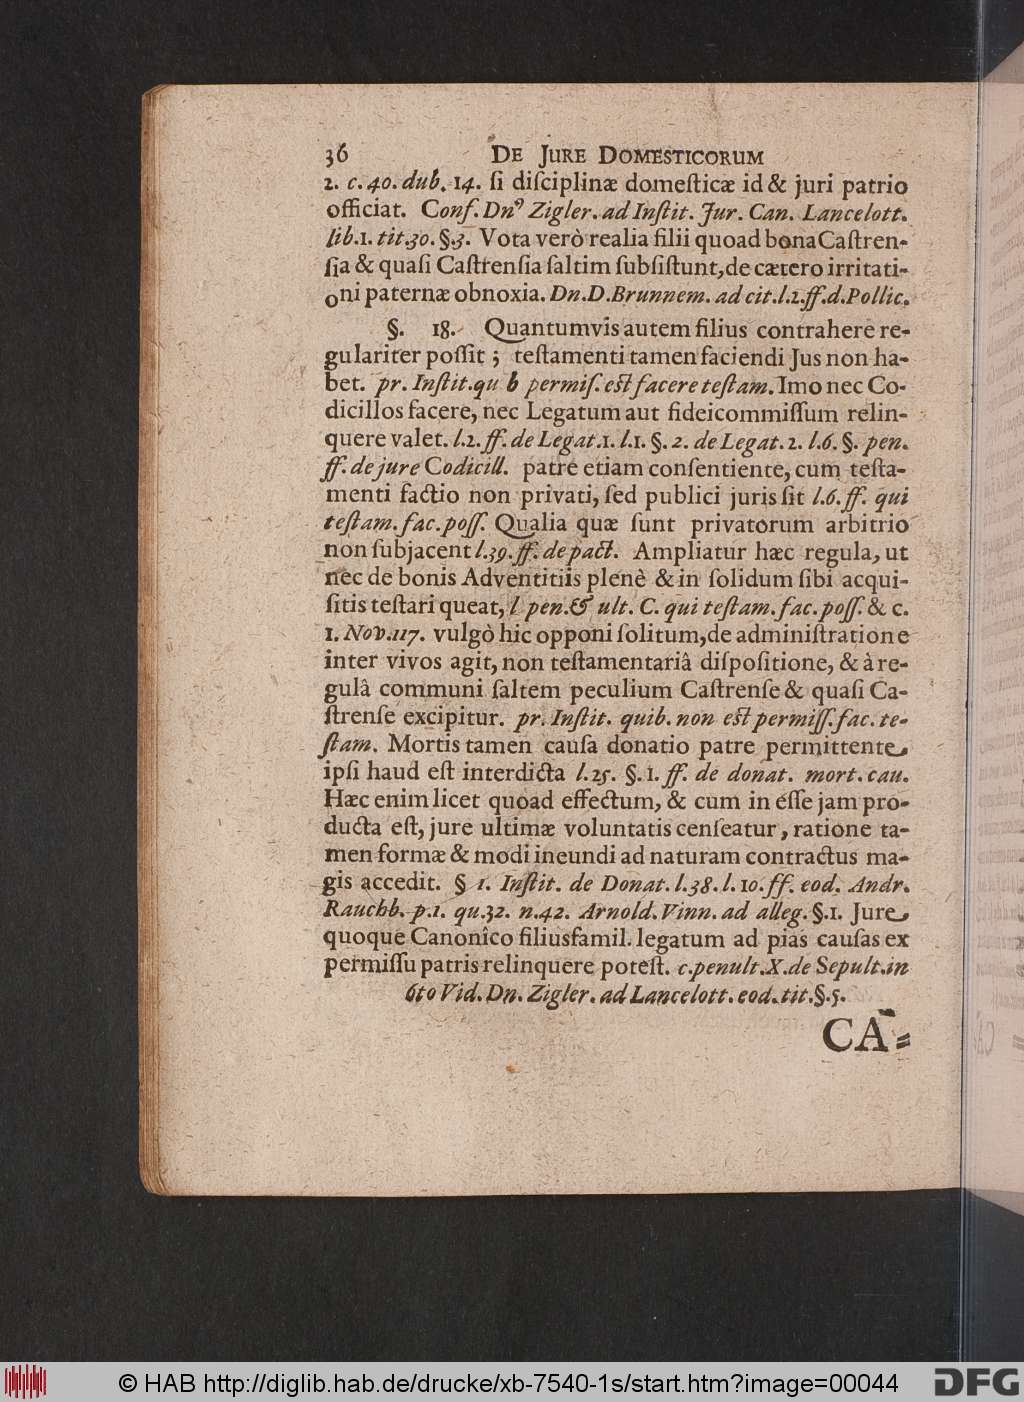 36 DE JURE DOMESTICORUM
2. c. 40. dub. 14. ſi diſciplinæ domeſticæ id & juri patrio
officiat. Conf. Dn⁹ Zigler. ad Inſtit. Jur. Can. Lancelott.
lib. 1. tit. 30. §. 3. Vota verò realia filii quoad bona Caſtren-
ſia & quaſi Caſtrenſia ſaltim ſubſiſtunt, de cætero irritati-
oni paternæ obnoxia. Dn. D. Brunnem. ad cit. l. 2. ff. d. Pollic.
§. 18. Quantumvis autem filius contrahere re-
gulariter poſſit; teſtamenti tamen faciendi Jus non ha-
bet. pr. Inſtit. qu b permiſ. eſt facere teſtam. Imo nec Co-
dicillos facere, nec Legatum aut fideicommiſſum relin-
quere valet. l. 2. ff. de Legat. 1. l. 1. §. 2. de Legat. 2. l. 6. §. pen.
ff. de jure Codicill. patre etiam conſentiente, cum teſta-
menti factio non privati, ſed publici juris ſit l. 6. ff. qui
teſtam. fac. poſſ. Qualia quæ ſunt privatorum arbitrio
non ſubjacent l. 39. ff. de pact. Ampliatur hæc regula, ut
nec de bonis Adventitiis plenè & in ſolidum ſibi acqui-
ſitis teſtari queat, l pen. & ult. C. qui teſtam. fac. poſſ. & c.
1. Nov. 117. vulgò hic opponi ſolitum, de adminiſtratione
inter vivos agit, non teſtamentariâ diſpoſitione, & à re-
gulâ communi ſaltem peculium Caſtrenſe & quaſi Ca-
ſtrenſe excipitur. pr. Inſtit. quib. non eſt permiſſ. fac. te-
ſtam. Mortis tamen cauſa donatio patre permittente
ipſi haud eſt interdicta l. 25. §. 1. ff. de donat. mort. cau.
Hæc enim licet quoad effectum, & cum in eſſe jam pro-
ducta eſt, jure ultimæ voluntatis cenſeatur, ratione ta-
men formæ & modi ineundi ad naturam contractus ma-
gis accedit. § 1. Inſtit. de Donat. l. 38. l. 10. ff. eod. Andr.
Rauchb. p. 1. qu. 32. n. 42. Arnold. Vinn. ad alleg. §. 1. Jure
quoque Canonîco filiusfamil. legatum ad pias cauſas ex
permiſſu patris relinquere poteſt. c. penult. X. de Sepult. in
6to Vid. Dn. Zigler. ad Lancelott. eod. tit. §. 5.
CA-
© HAB http://diglib.hab.de/drucke/xb-7540-1s/start.htm?image=00044
DFG